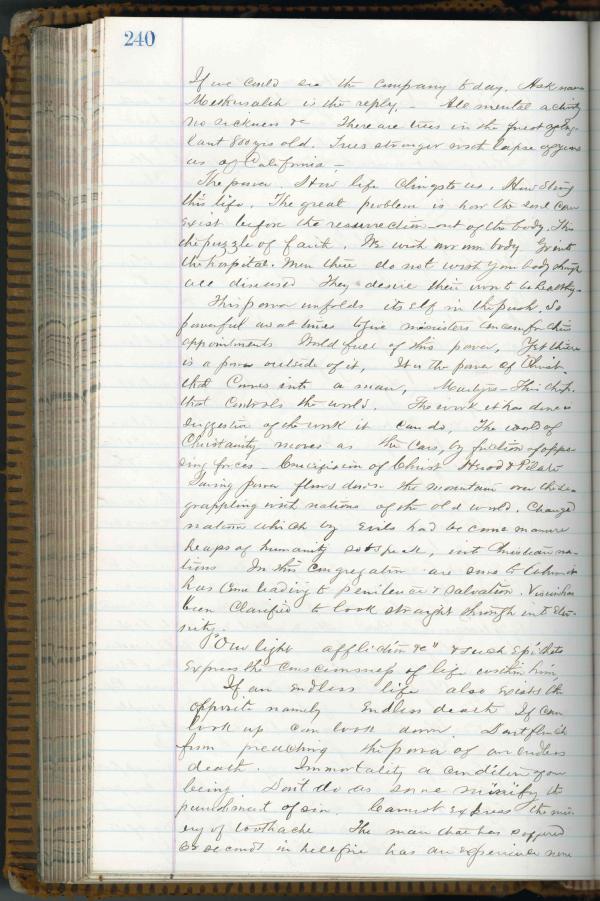 240
If we could see the company today. Ask name
Methusaleh is the reply. - All mental activity
no sickness &c There are trees in the
lant 800 yrs old. Trees stronger not lapse of years
as of California -
The power. How life clings to us. How
this life. The great problem is how the soul can
exist before the resurrection out of the body. This
the puzzle of faith. We wish our own body. Go into
the hospital. Men there do not wish your body though
all diseased They desire their own to be healthy -
This power unfolds itself in the push. So
powerful as at times to give ministers concern for their
appointments World full of this power, Yet there
is a power outside of it, It is the power of Christ
that comes into a man, Martyrs - This
that controls the world. The work it has done is
suggestive of the work it can do, The world of
Christianity moves as the cars, by friction of oppo
sing forces - Crucifixion of Christ Herod & Pilate
Saving power flows down the mountain over the sea
grappling with nations of the old world. Changed
nations which by evils had become manure
heaps of humanity so to speak, into Christian na-
tions In this congregation are some to whom it
has come leading to penitence & salvation. Vision has
been clarified to look straight through into eter-
nity.
"Our light affliction &c" & such epithets
express the consciousness of life within him
If an endless life also exists the
opposite namely endless death If can
look up can look down. Dont flinch
from preaching the power of an endless
death. Immortality a condition of our
being Don't do as some minify the
punishment of sin. Cannot express the mis-
ery of toothache The man that has suffered
seconds in hellfire has an experience none